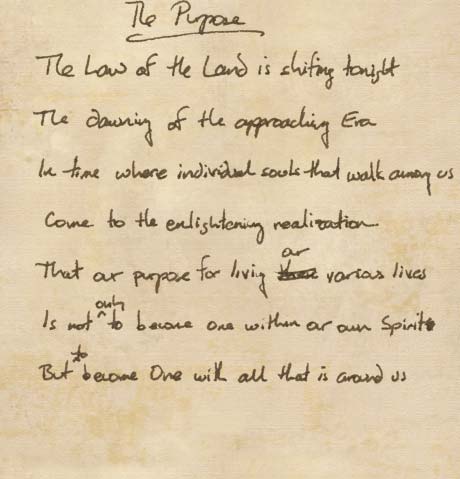 The Purpose
The Law of the Land is shifting tonight
The dawning of the approaching Era
In time where individual souls that walk among us
Come to the enlightening realization
That our purpose for living our various lives
Is not only to become one within our own Spirit
But to become One with all that is around us